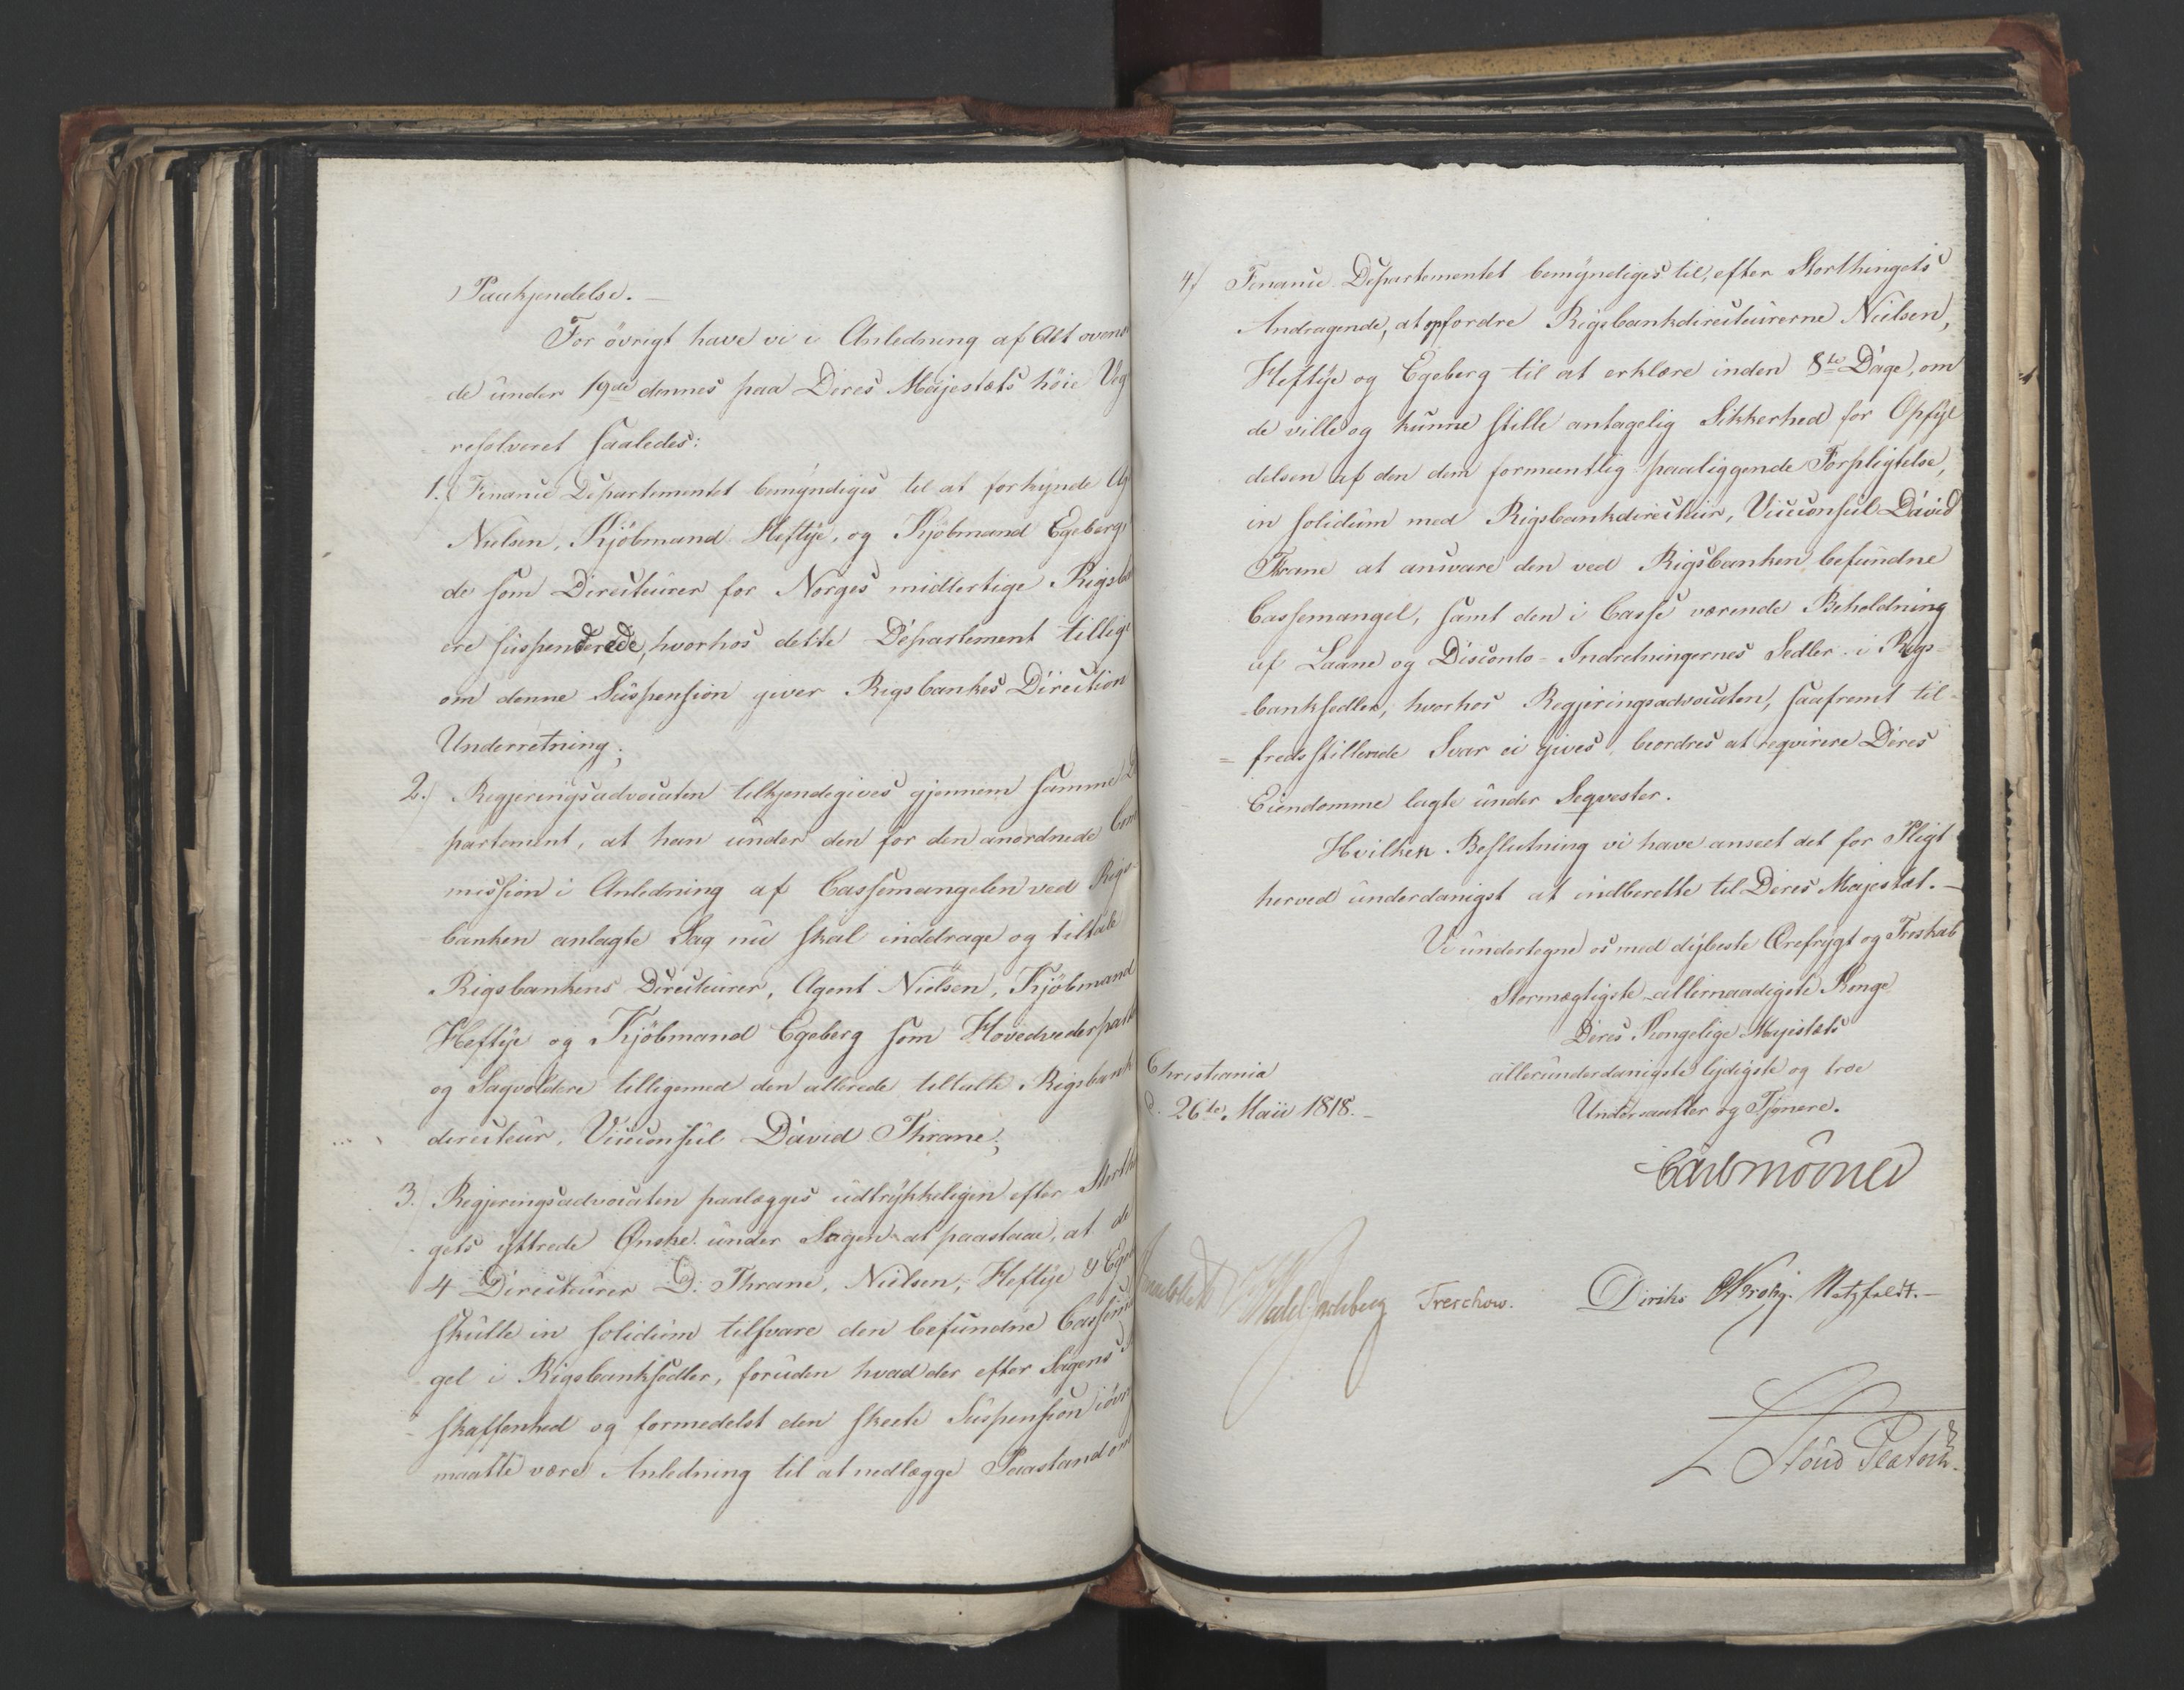 Paakjendelse. —
For övrigt have vi i Anledning af Alt oven
de under 19de dennes paa Deres Majestæts höie Veg
resolveret saaledes:
1. Finance Departementet bemyndiges til at forkynde Ag
Nielsen, Kjöbmand Heftye, og Kjöbmand Egeberg,
de som Directeurer for Norges midlertige Rigsb
ere suspenderede, hvorhos dette Departement tillige
om denne Suspension giver Rigsbankes Direction
Underretning;
2.) Regjeringsadvocaten tilkjendegives gjennem samme D
partement, at han under den for den anordnede Com
mission i Anledning af Cassemangelen ved Rigs-
banken anlagte Sag nu skal inddrage og tiltale
Rigsbankens Directeurer, Agent Nielsen, Kjöbmand
Heftye og Kjöbmand Egeberg som Hovedvederpart
og Sagvoldere tilligemed den allerede tiltalte Rigsbank
directeur, Viceconsul David Thrane;
3.) Regjeringsadvocaten paalægges udtrykkeligen efter Storth
gets yttrede Ønske under Sagen at paastaae, at de
4 Directeurer D. Thrane, Nielsen, Heftye & Ege
skulle in solidum tilsvare den befundne Cassem
gel i Rigsbanksedler, foruden hvad der efter Sagens
skaffenhed og formedelst den skeete Suspension iövr
maatte være Anledning til at nedlægge Paastand om
4) Finance Departementet bemyndiges til, efter Storthingets
Andragende, at opfordre Rigsbankdirecteurerne Nielsen,
Heftye og Egeberg til at erklære inden 8te Dage, om
de ville og kunne stille antagelig Sikkerhed for Opfyl
delsen af den dem formeentlig paaliggende Forpligtelse,
in solidum med Rigsbankdirecteur, Viceconsul David
Thrane at answare den ved Rigsbanken befundne
Cassemangel, samt den i Casse værende Beholdning
af Laane og Disconto-Indretningernes Sedler i Rigs-
banksedler, hvorhos Regjeringsadvocaten, saafremt til-
fredsstillende Svar ei gives, beordres at reqvirere Deres
Eiendomme lagte under Seqvester.
Hvilken Beslutning vi have anseet det for Pligt
herved underdanigst at indberette til Deres Majestæt. —
Vi undertegne os med dybeste Ærefrygt og Troskab
Stormægtigste allernaadigste Konge
Deres Kongelige Majestæts
allerunderdanigste lydigste og troe
Undersaatter og Tjenere.
Christiania
d. 26de Maii 1818. —
Carl Mörner
Wedel Jarlsberg Treschow. Diriks Krohg. Motzfeldt. —